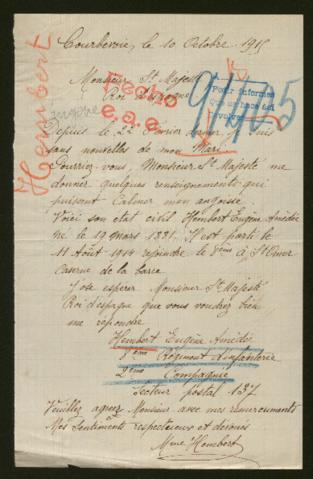 Courbevoie, le 10 Octobre 1915
Hembert
Eugène
Monsieur Sa Majesté
Roi d'Espagne
Fecho
e.a.e.
94505
Para informes
que se hace del
Depuis le 22 Février dernier, je suis
sans nouvelles de mon Mari.
Pourriez-vous, Monsieur Sa Majesté me
donner quelques renseignements qui
puissent calmer mon angoisse.
Voici son état civil Hembert Eugène Aimédée
né le 19 mars 1881. Il est parti le
11 Août 1914 rejoindre le 8ème à St Omer
Caserne de la barre
J'ose espérer Monsieur Sa Majesté
Roi d'espagne que vous voudrez bien
me repondre
Hembert Eugène
8ème Régiment d'infanterie
2ème Compagnie
Secteur postal 137
Veuillez agréez Monsieur avec mes remerciements
Mes Sentiments respectueux et dévoués
Mme Hembert